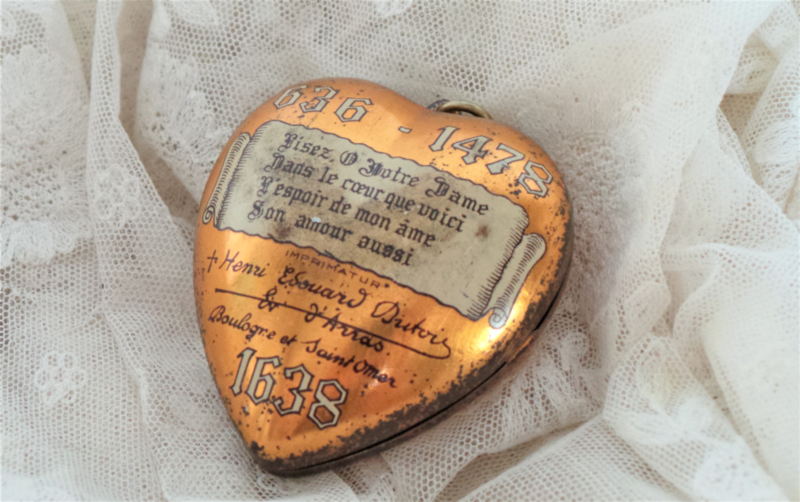 636 - 1478
Lisez, O Notre Dame
Dans le cœur que voici
L'espoir de mon âme
Son amour aussi
IMPRIMATUR
+ Henri Edouard Dutoit
Ev d'Arras
Boulogne et Saint Omer
1638